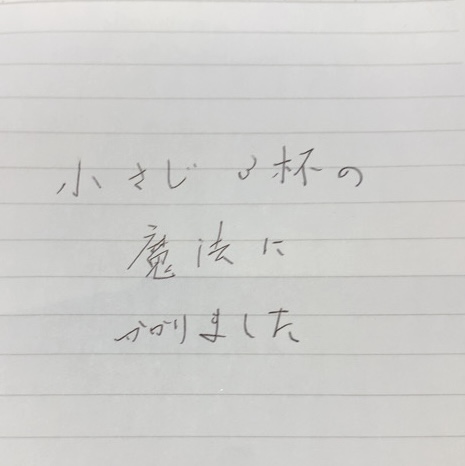 小さじ3杯の
魔法に
かかりました